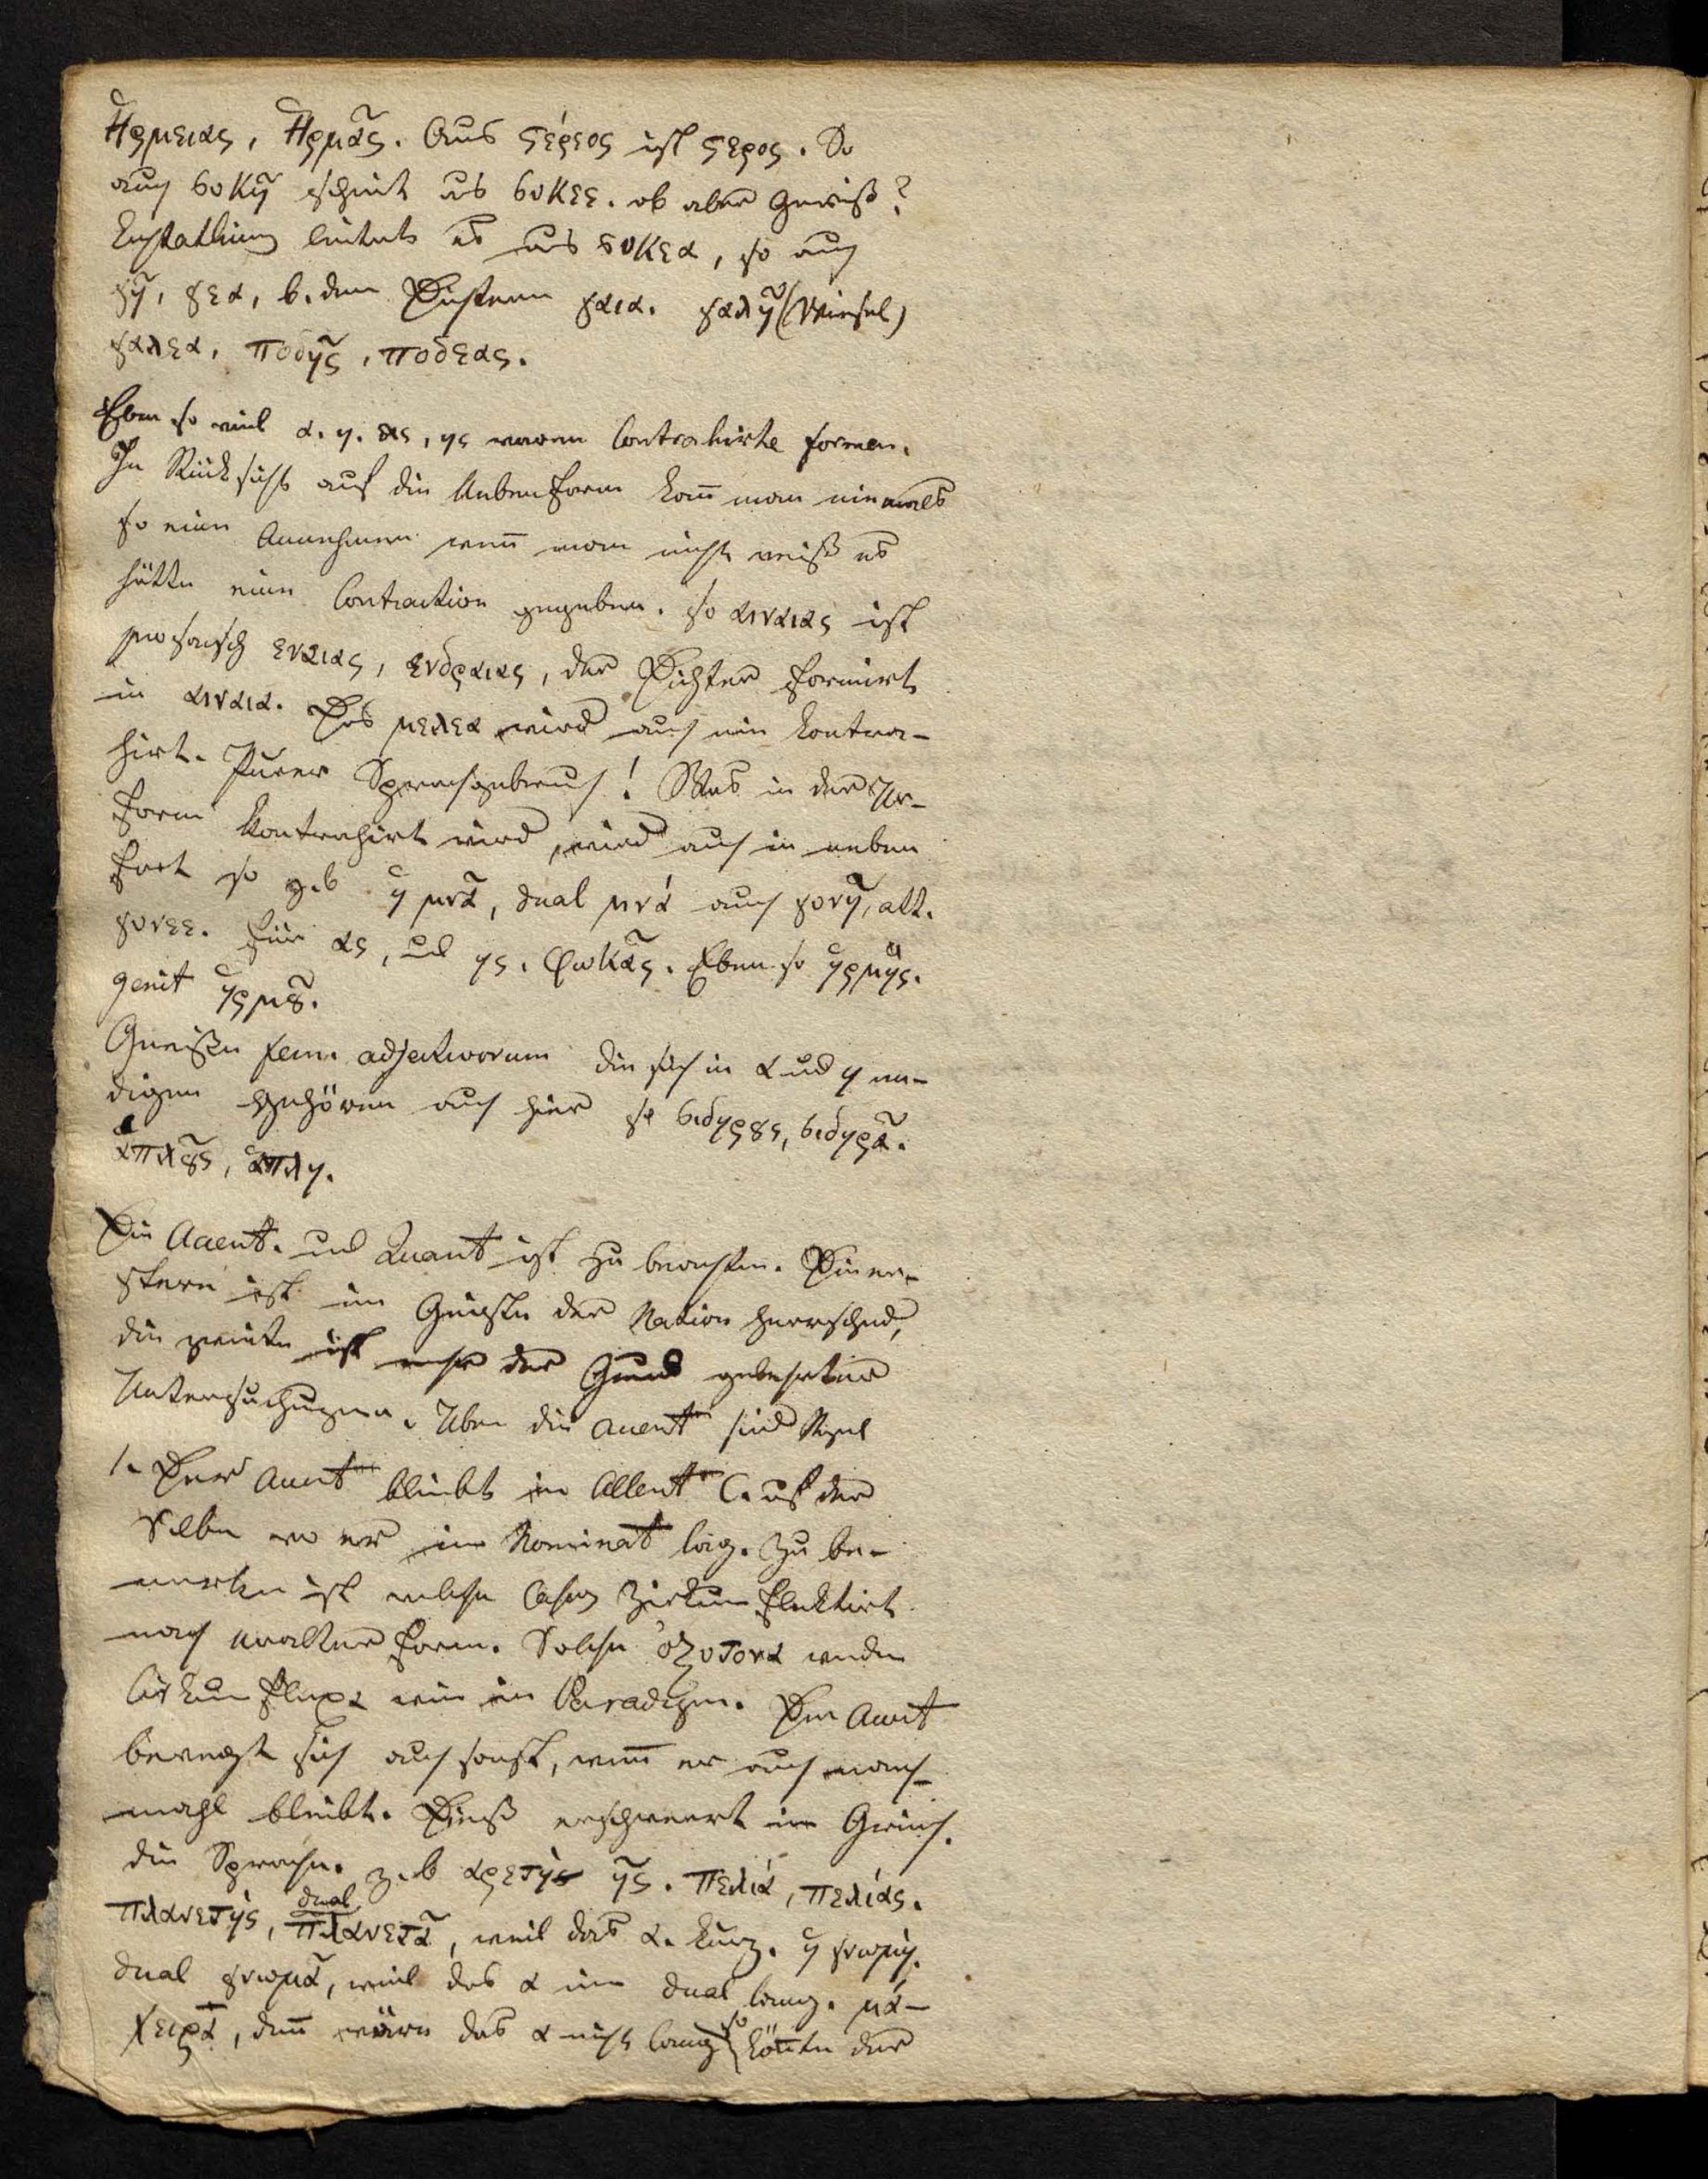 Ἡρμειας, Ἡρμᾶς. Aus ϛέρεος ist ϛερος. So
auch συκῆ scheint aus συκεε. ob aber gewiß?
Eustathius leitets es aus συκεα, so auch
γῆ, γεα, b. den Dichtern γαια. γαλῆ (Wiesel)
γαλεα, ποδῆς, ποδεας.
Eben so viel α. η. ας, ης waren Contrahirte formen.
In Rücksicht auf die Nebenform kan̄ man niemals
so eine Annehmen wen̄ man nicht weiß es
hätte eine Contraction gegeben. so αιναιας ist
prosaisch ενειας, ενδραιας, der Dichter formirt
in αιναια. Das μελεα wird auch nie kontra-
hirt. Purer Sprachgebrauch! Was in der Ur-
form kontrahirt wird, wird auch in neben
fort so z. b ἡ μνᾶ, dual μνά auch γονῆ, att.
γονεε. Für ας, und ης. Φωκᾶς. Eben so ἡρμῆς.
genit ἡρμȣ͂.
Gewisse fem. adjectivorum die sich in α und η en-
digen gehören auch hier so σιδηρȣς, σιδηρᾶ.
ἁπλȣ͂ς, ἁπλη.
Die Accent. und Quant ist zu beachten. Die er-
stere ist im Geiste der Nation herrschend,
die zweite ist mehr der Grund gelehrter
Untersuchungen. Über die accent sind Regel
1. Der Accent bleibt in allen C. auf der
Silbe wo er im Nominat lag. Zu be-
merken ist welche Casus Zirkumflektirt
nach uralter Form. Solche ὀξυτονα werden
Cirkumflexa wie im Paradigm. Der Accent
bewegt sich auch sonst, wen̄ er auch manch-
mahl bleibt. Dieß erschwert im Griech.
die Sprache. z. b αρετὴ ῆς. πελιά, πελιάς.
πλανετής, dual πλανετᾶ, weil das α. kurz. ἡ γνωμή.
dual γνωμᾶ, weil das α im dual lang. μά-
χειρᾱ, den̄ wäre das α nicht lang so kön̄te der